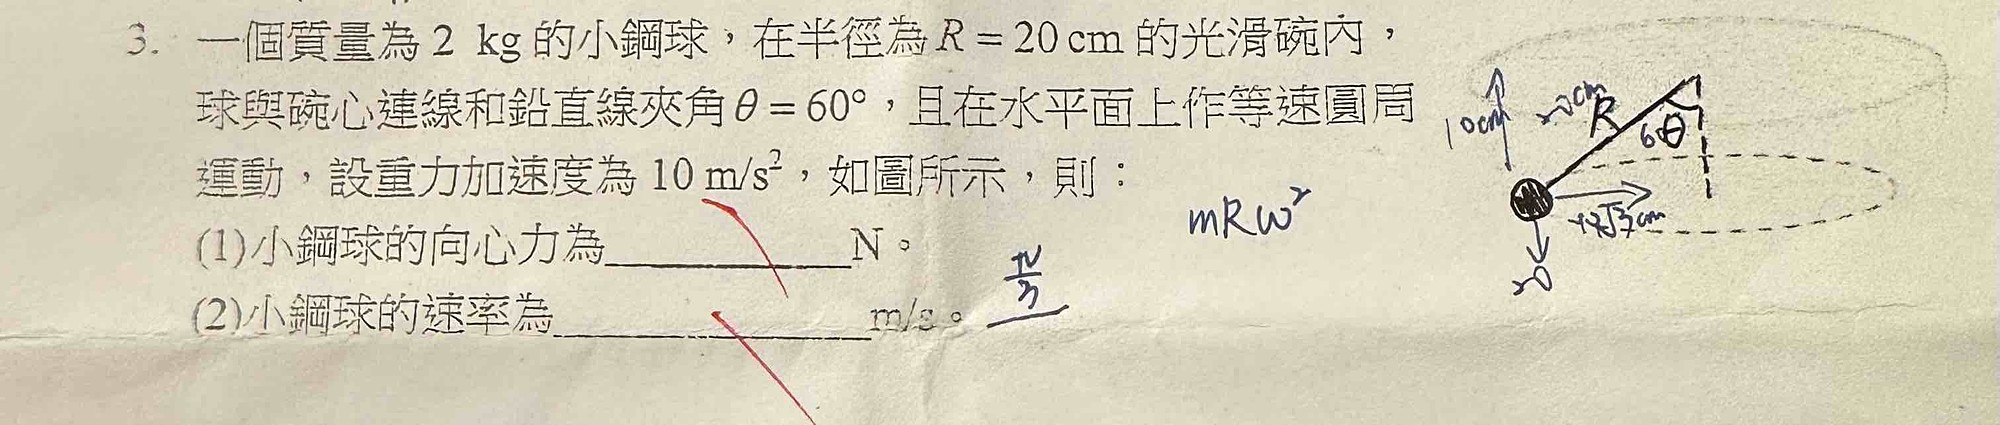 3. 一個質量為 2 kg 的小鋼球，在半徑為 R = 20 cm 的光滑碗內，
球與碗心連線和鉛直線夾角 θ = 60°，且在水平面上作等速圓周
運動，設重力加速度為 10 m/s²，如圖所示，則：
(1)小鋼球的向心力為__________N。
(2)小鋼球的速率為__________m/s。
mRω²
π/3
10cm
20cm
R
60
θ
20